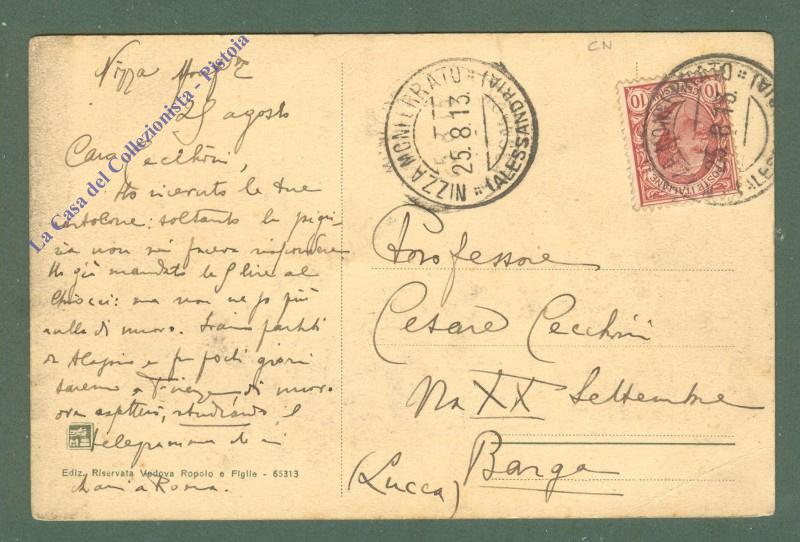 Nizza Monf.
25 agosto
Caro Cecchini,
Ho ricevuto le due
cartoline: soltanto la pigri-
zia non mi faceva rispondere
Ho già mandato le lire al
Chiocci: ma non ne so più
nulla di nuovo. Siamo partiti
da Alassio e fra pochi giorni
saremo a Firenze, di nuovo
ora aspetto, studiando, il
telegramma di
Ediz. Riservata Vedova Ropolo e Figlie - 65313
Roma.
La Casa del Collezionista - Pistoia
NIZZA MONFERRATO
25.8.13.
(ALESSANDRIA)
CN
POSTE ITALIANE
10
10
8.13.
Professore
Cesare Cecchini
Via XX Settembre
Barga
(Lucca)